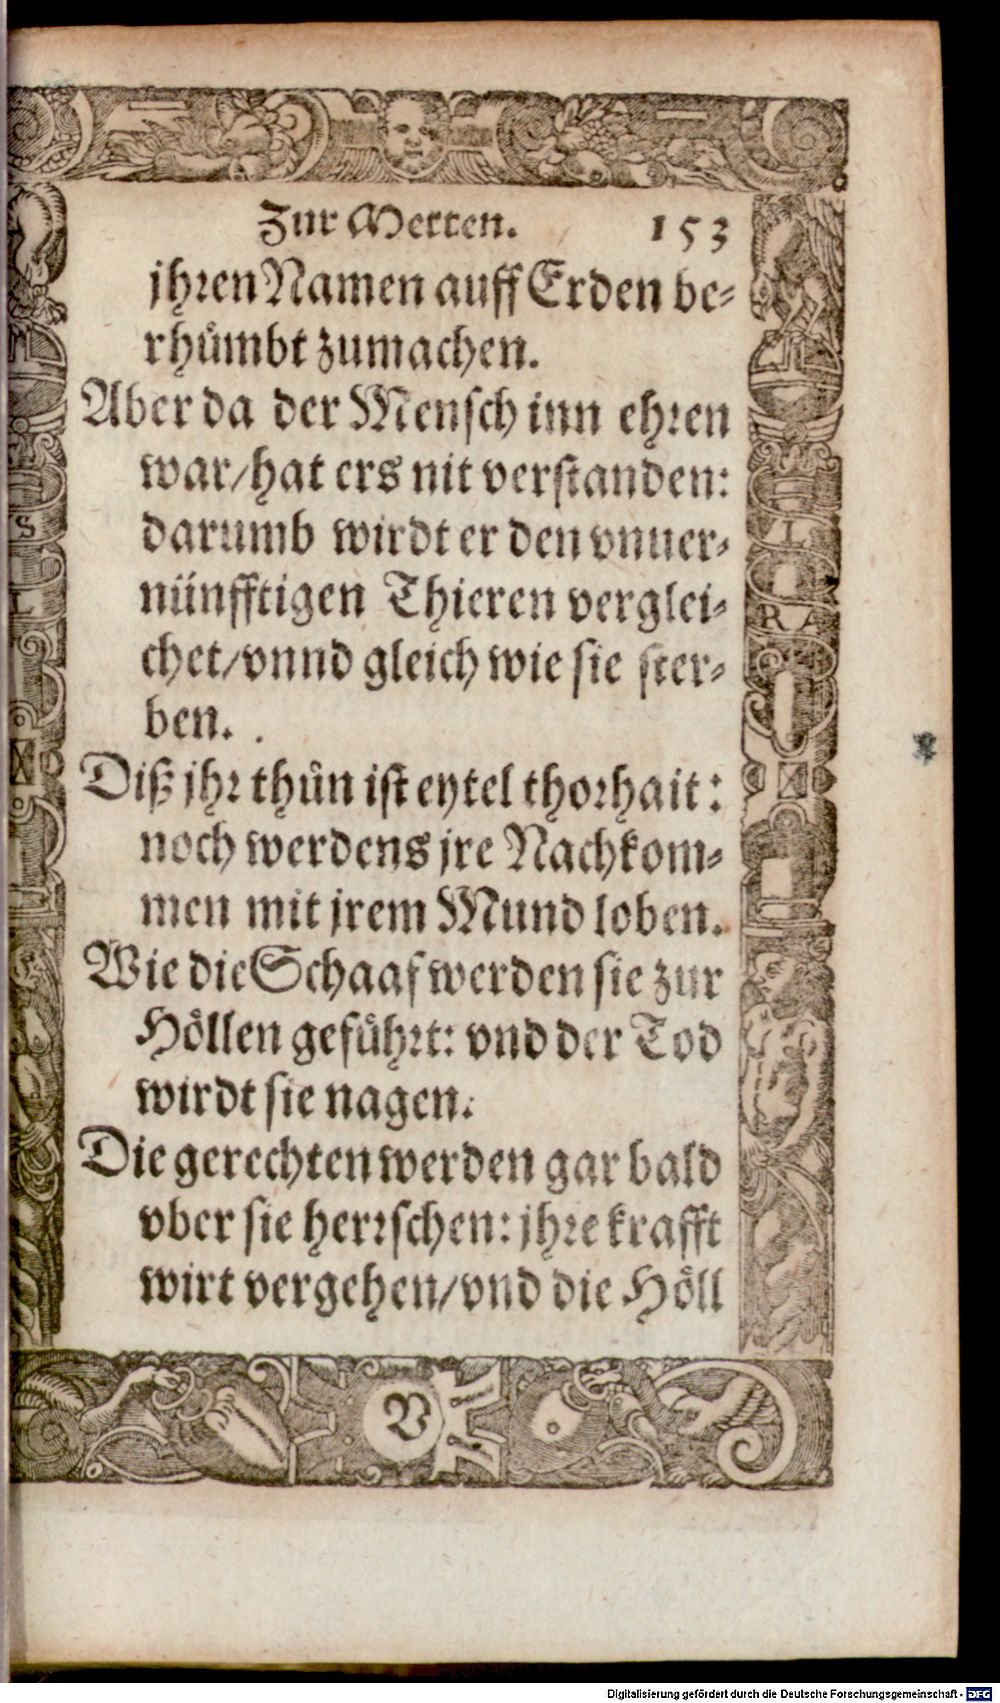 Zur Metten. 153
jhren Namen auff Erden be-
rhuͤmbt zumachen.
Aber da der Mensch inn ehren
war/hat ers nit verstanden:
darumb wirdt er den vnuer-
nünfftigen Thieren verglei-
chet/vnnd gleich wie sie ster-
ben.
Diß jhr thuͦn ist eytel thorhait:
noch werdens jre Nachkom-
men mit jrem Mund loben.
Wie die Schaaf werden sie zur
Hoͤllen gefuͤhrt: vnd der Tod
wirdt sie nagen.
Die gerechten werden gar bald
vber sie herrschen: jhre krafft
wirt vergehen/vnd die Hoͤll
V
S
L
L
R A
Digitalisierung gefördert durch die Deutsche Forschungsgemeinschaft - DFG